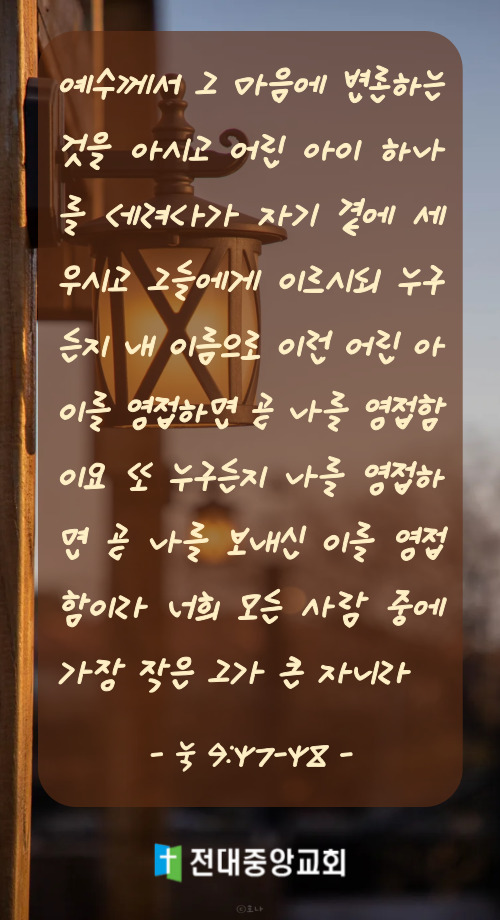 예수께서 그 마음에 변론하는
것을 아시고 어린 아이 하나
를 데려다가 자기 곁에 세
우시고 그들에게 이르시되 누구
든지 내 이름으로 이런 어린 아
이를 영접하면 곧 나를 영접함
이요 또 누구든지 나를 영접하
면 곧 나를 보내신 이를 영접
함이라 너희 모든 사람 중에
가장 작은 그가 큰 자니라
- 눅 9:47-48 -
전대중앙교회